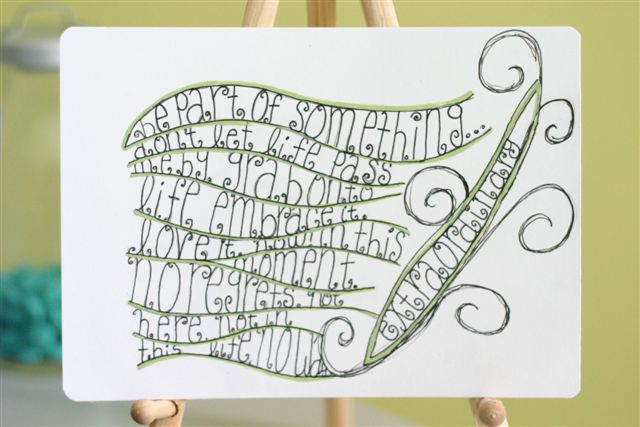 be part of something...
extraordinary
don't let life pass
me by grab on to
life embrace it.
love it. now in this
moment.
no regrets. not
here. not in
this life now